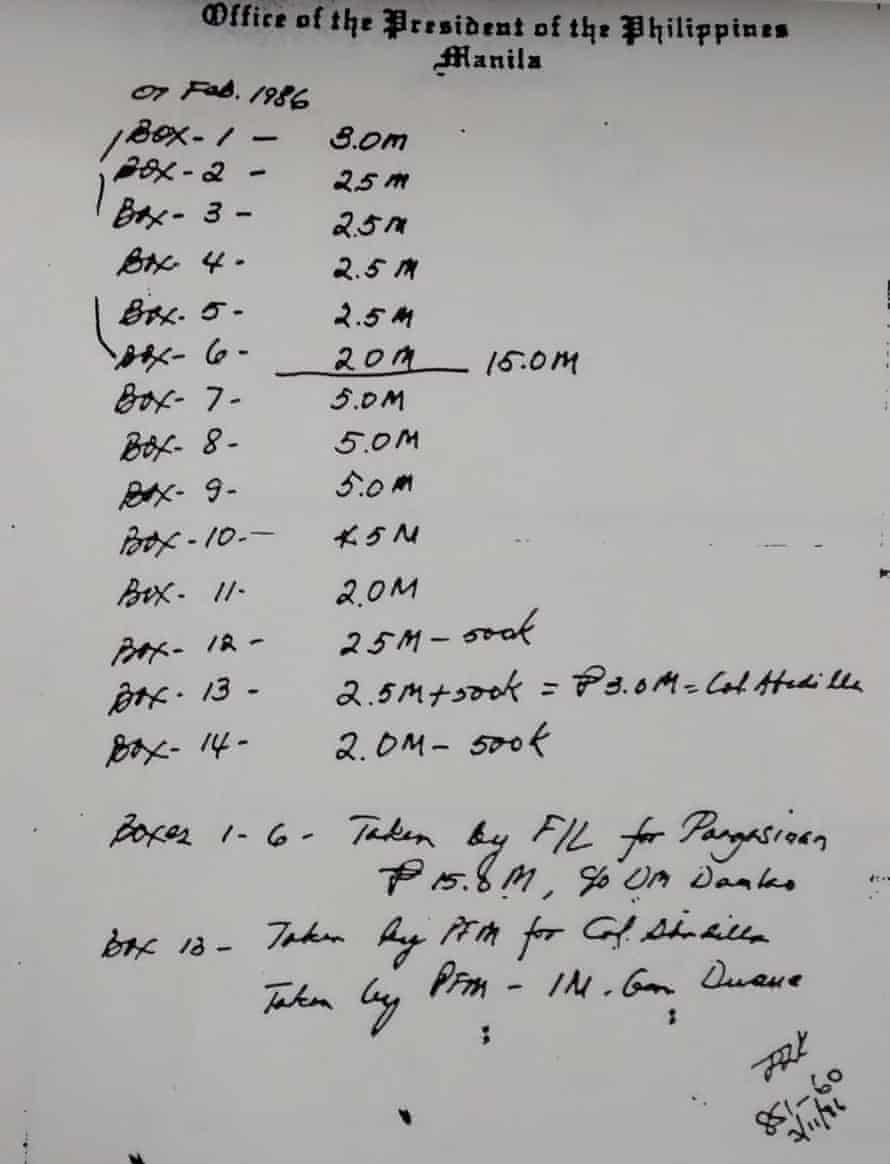 Office of the President of the Philippines
Manila
07 Feb. 1986
Box - 1 - 3.0M
Box - 2 - 2.5M
Box - 3 - 2.5M
Box 4 - 2.5M
Box - 5 - 2.5M
Box - 6 - 2.0M 15.0M
Box - 7 - 5.0M
Box - 8 - 5.0M
Box - 9 - 5.0M
Box - 10 - 5M
Box - 11 - 2.0M
Box - 12 - 2.5M - 500k
Box - 13 - 2.5M + 500k = ₱3.0M = Col. Abadilla
Box - 14 - 2.0M - 500k
Boxes 1 - 6 - Taken by F/L for Pangasinan
₱ 15. M, c/o
Box 13 - Taken by PFM for Col. Abadilla
Taken by PFM - 1M. Gen
851-60
2/11/86